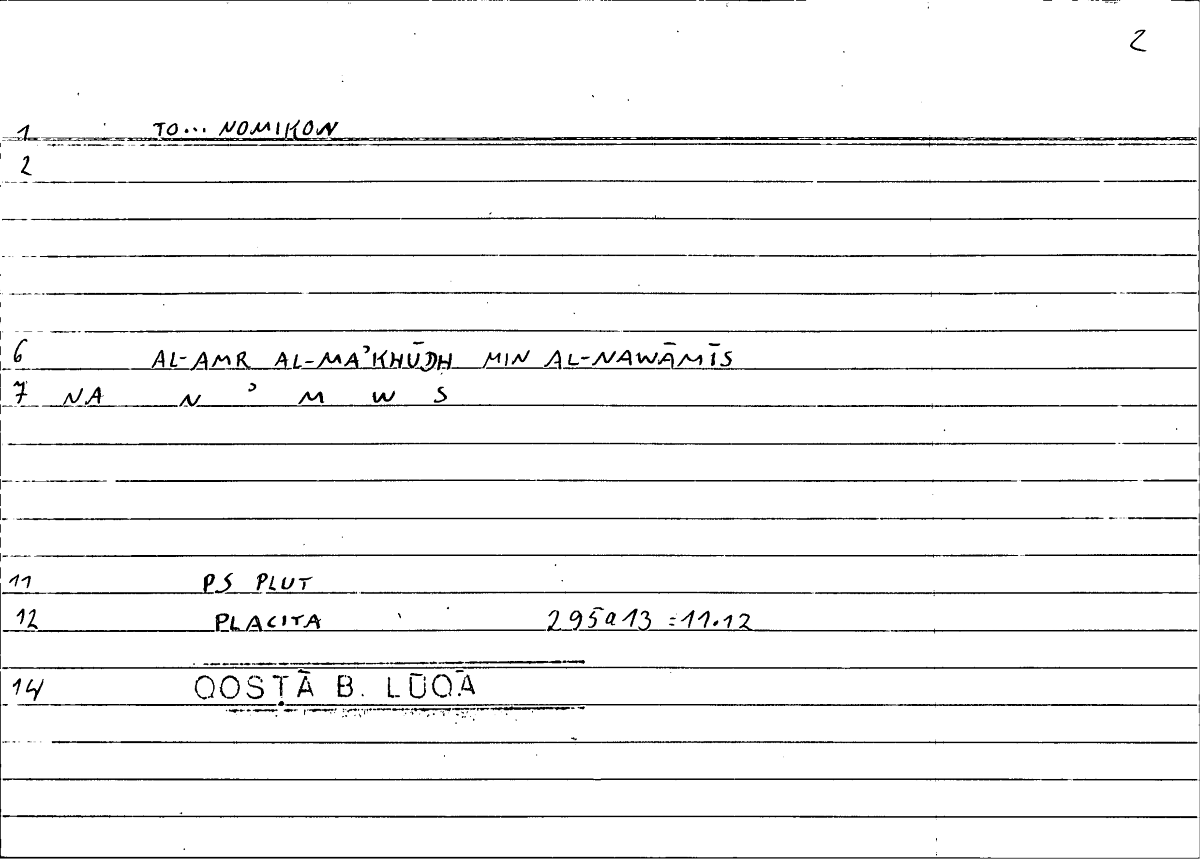 2
1 TO... NOMIKON
2
6 AL-AMR AL-MAʾKHŪDH MIN AL-NAWĀMĪS
7 NA N ʾ M W S
11 PS PLUT
12 PLACITA 295a13 = 11.12
14 QOSṬĀ B. LŪQĀ